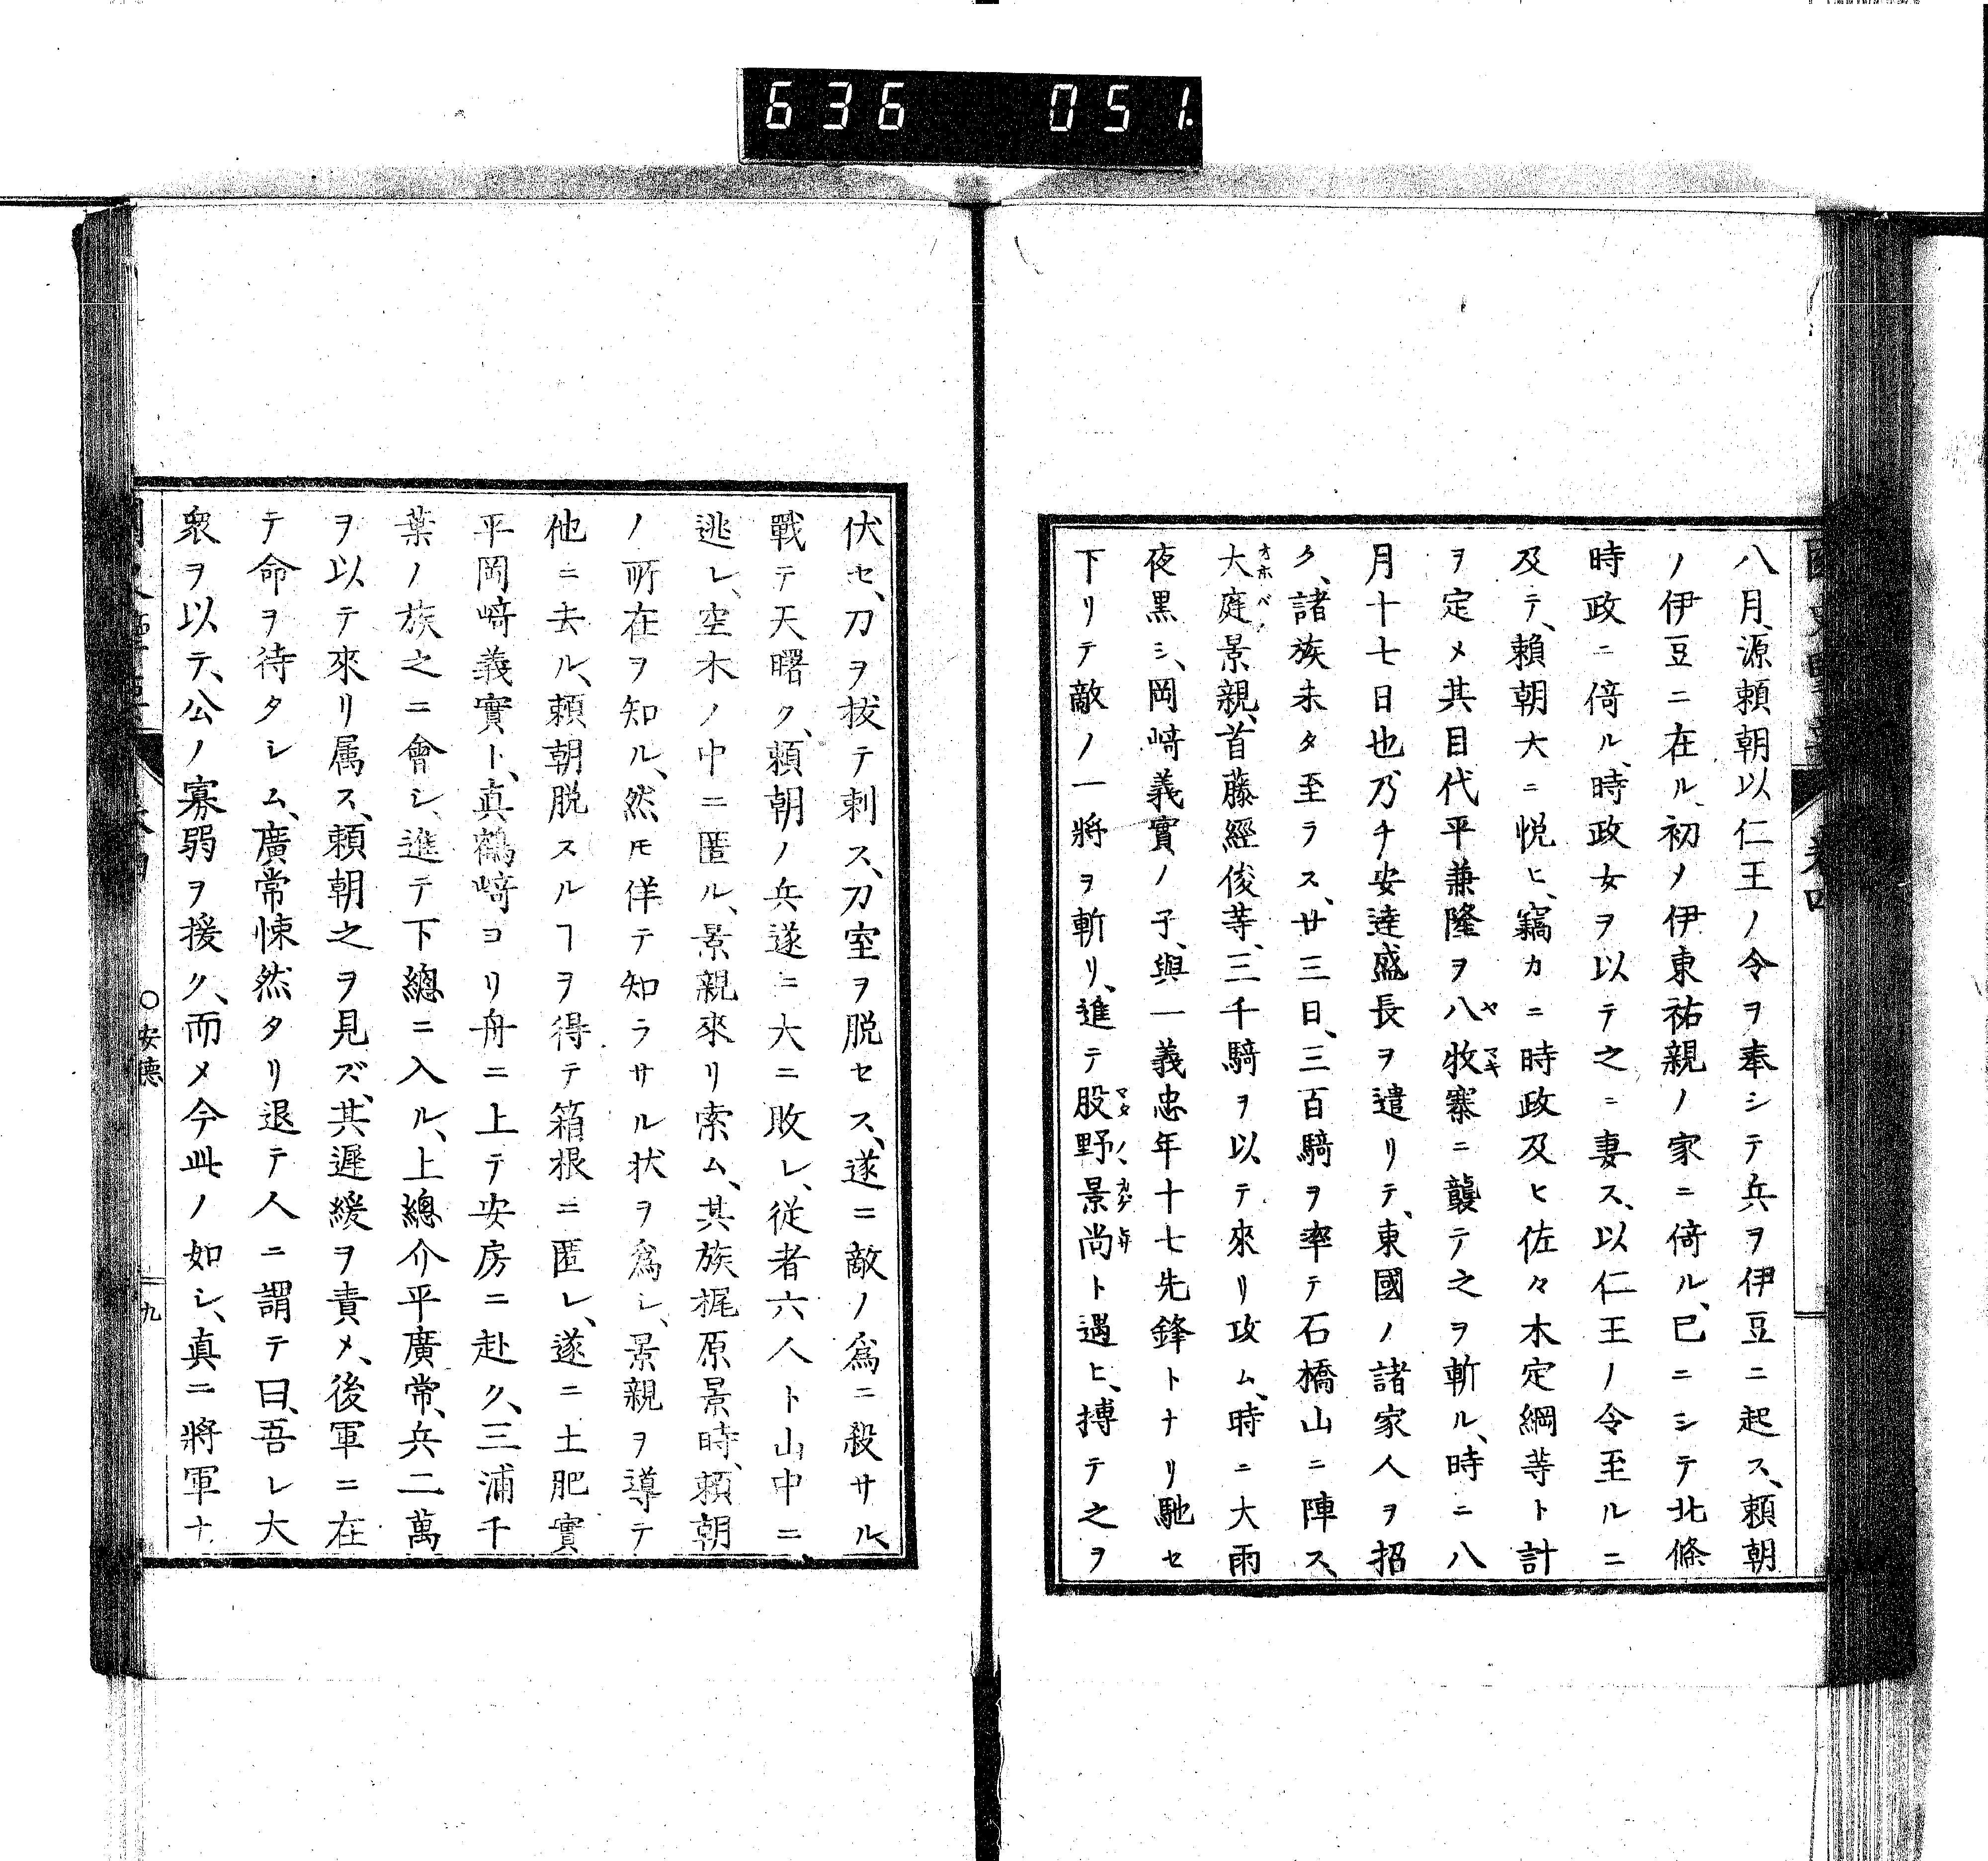 636 051.
八月、源頼朝以仁王ノ令ヲ奉シテ兵ヲ伊豆ニ起ス、頼朝
ノ伊豆ニ在ル、初メ伊東祐親ノ家ニ倚ル、已ニシテ北條
時政ニ倚ル、時政女ヲ以テ之ニ妻ス、以仁王ノ令至ルニ
及テ、頼朝大ニ悦ヒ、竊カニ時政及ヒ佐々木定綱等ト計
ヲ定メ其目代平兼隆ヲ八牧寨ニ襲テ之ヲ斬ル、時ニ八
月十七日也、乃チ安達盛長ヲ遣リテ、東國ノ諸家人ヲ招
ク、諸族未タ至ラス、廿三日、三百騎ヲ率テ石橋山ニ陣ス、
大庭景親、首藤經俊等、三千騎ヲ以テ來リ攻ム、時ニ大雨
夜黒シ、岡﨑義實ノ子、與一義忠年十七先鋒トナリ馳セ
下リテ敵ノ一將ヲ斬リ、進テ股野景尚ト遇ヒ、搏テ之ヲ
伏セ、刀ヲ拔テ刺ス、刀室ヲ脱セス、遂ニ敵ノ爲ニ殺サル、
戰テ天曙ク、頼朝ノ兵遂ニ大ニ敗レ、従者六人ト山中ニ
逃レ、空木ノ中ニ匿ル、景親來リ索ム、其族梶原景時、頼朝
ノ所在ヲ知ル、然モ佯テ知ラサル状ヲ爲シ、景親ヲ導テ
他ニ去ル、頼朝脱スルヿヲ得テ箱根ニ匿レ、遂ニ土肥實
平岡﨑義實ト、真鶴﨑ヨリ舟ニ上テ安房ニ赴ク、三浦千
葉ノ族之ニ會シ、進テ下總ニ入ル、上總介平廣常、兵二萬
ヲ以テ來リ属ス、頼朝之ヲ見ズ、其遲緩ヲ責メ、後軍ニ在
テ命ヲ待タシム、廣常悚然タリ退テ人ニ謂テ曰、吾レ大
衆ヲ以テ、公ノ寡弱ヲ援ク、而メ今此ノ如シ、真ニ將軍ナ
○安徳
九